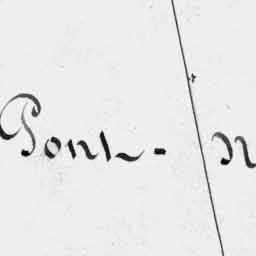 Pont - N